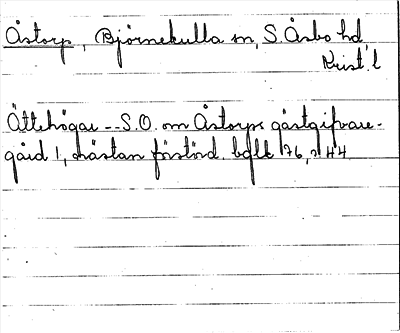 Åstorp, Björnekulla sn, S. Åsbo hd
Krist. l
Ättehögar -- S.O. om Åstorps gästgifvare-
gård 1, nästan förstörd. bgft 76, s 44